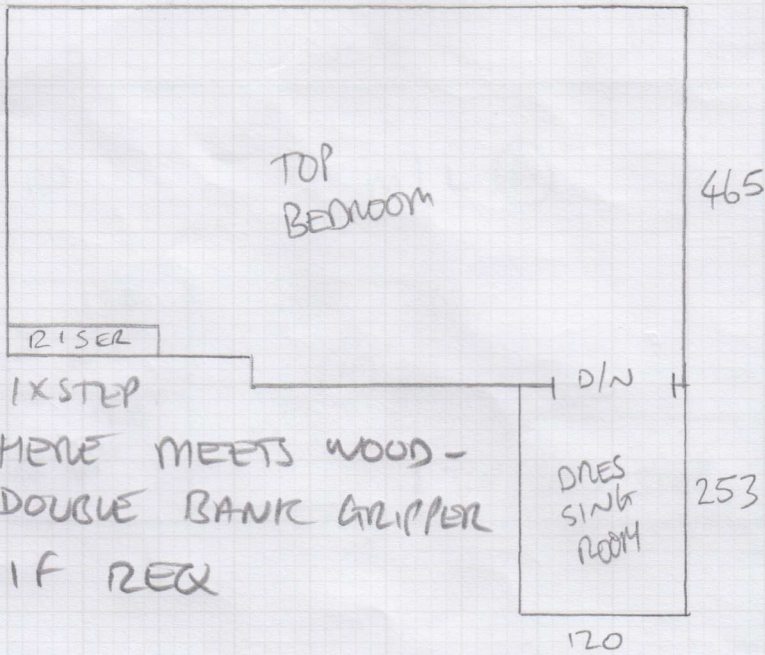 TOP
BEDROOM
465
RISER
1 X STEP
D/N
HERE MEETS WOOD -
DOUBLE BANK GRIPPER
IF REQ
DRES
SING
ROOM
253
120